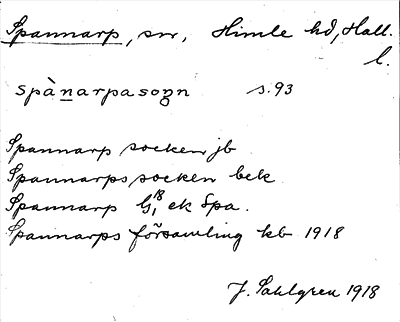 Spannarp, sn, Himle hd, Hall.
l.
spànarpasoɳn s. 93
Spannarp socken jb
Spannarps socken bek
Spannarp G 18 1 ek Spa.
Spannarps församling kb 1918
J. Sahlgren 1918